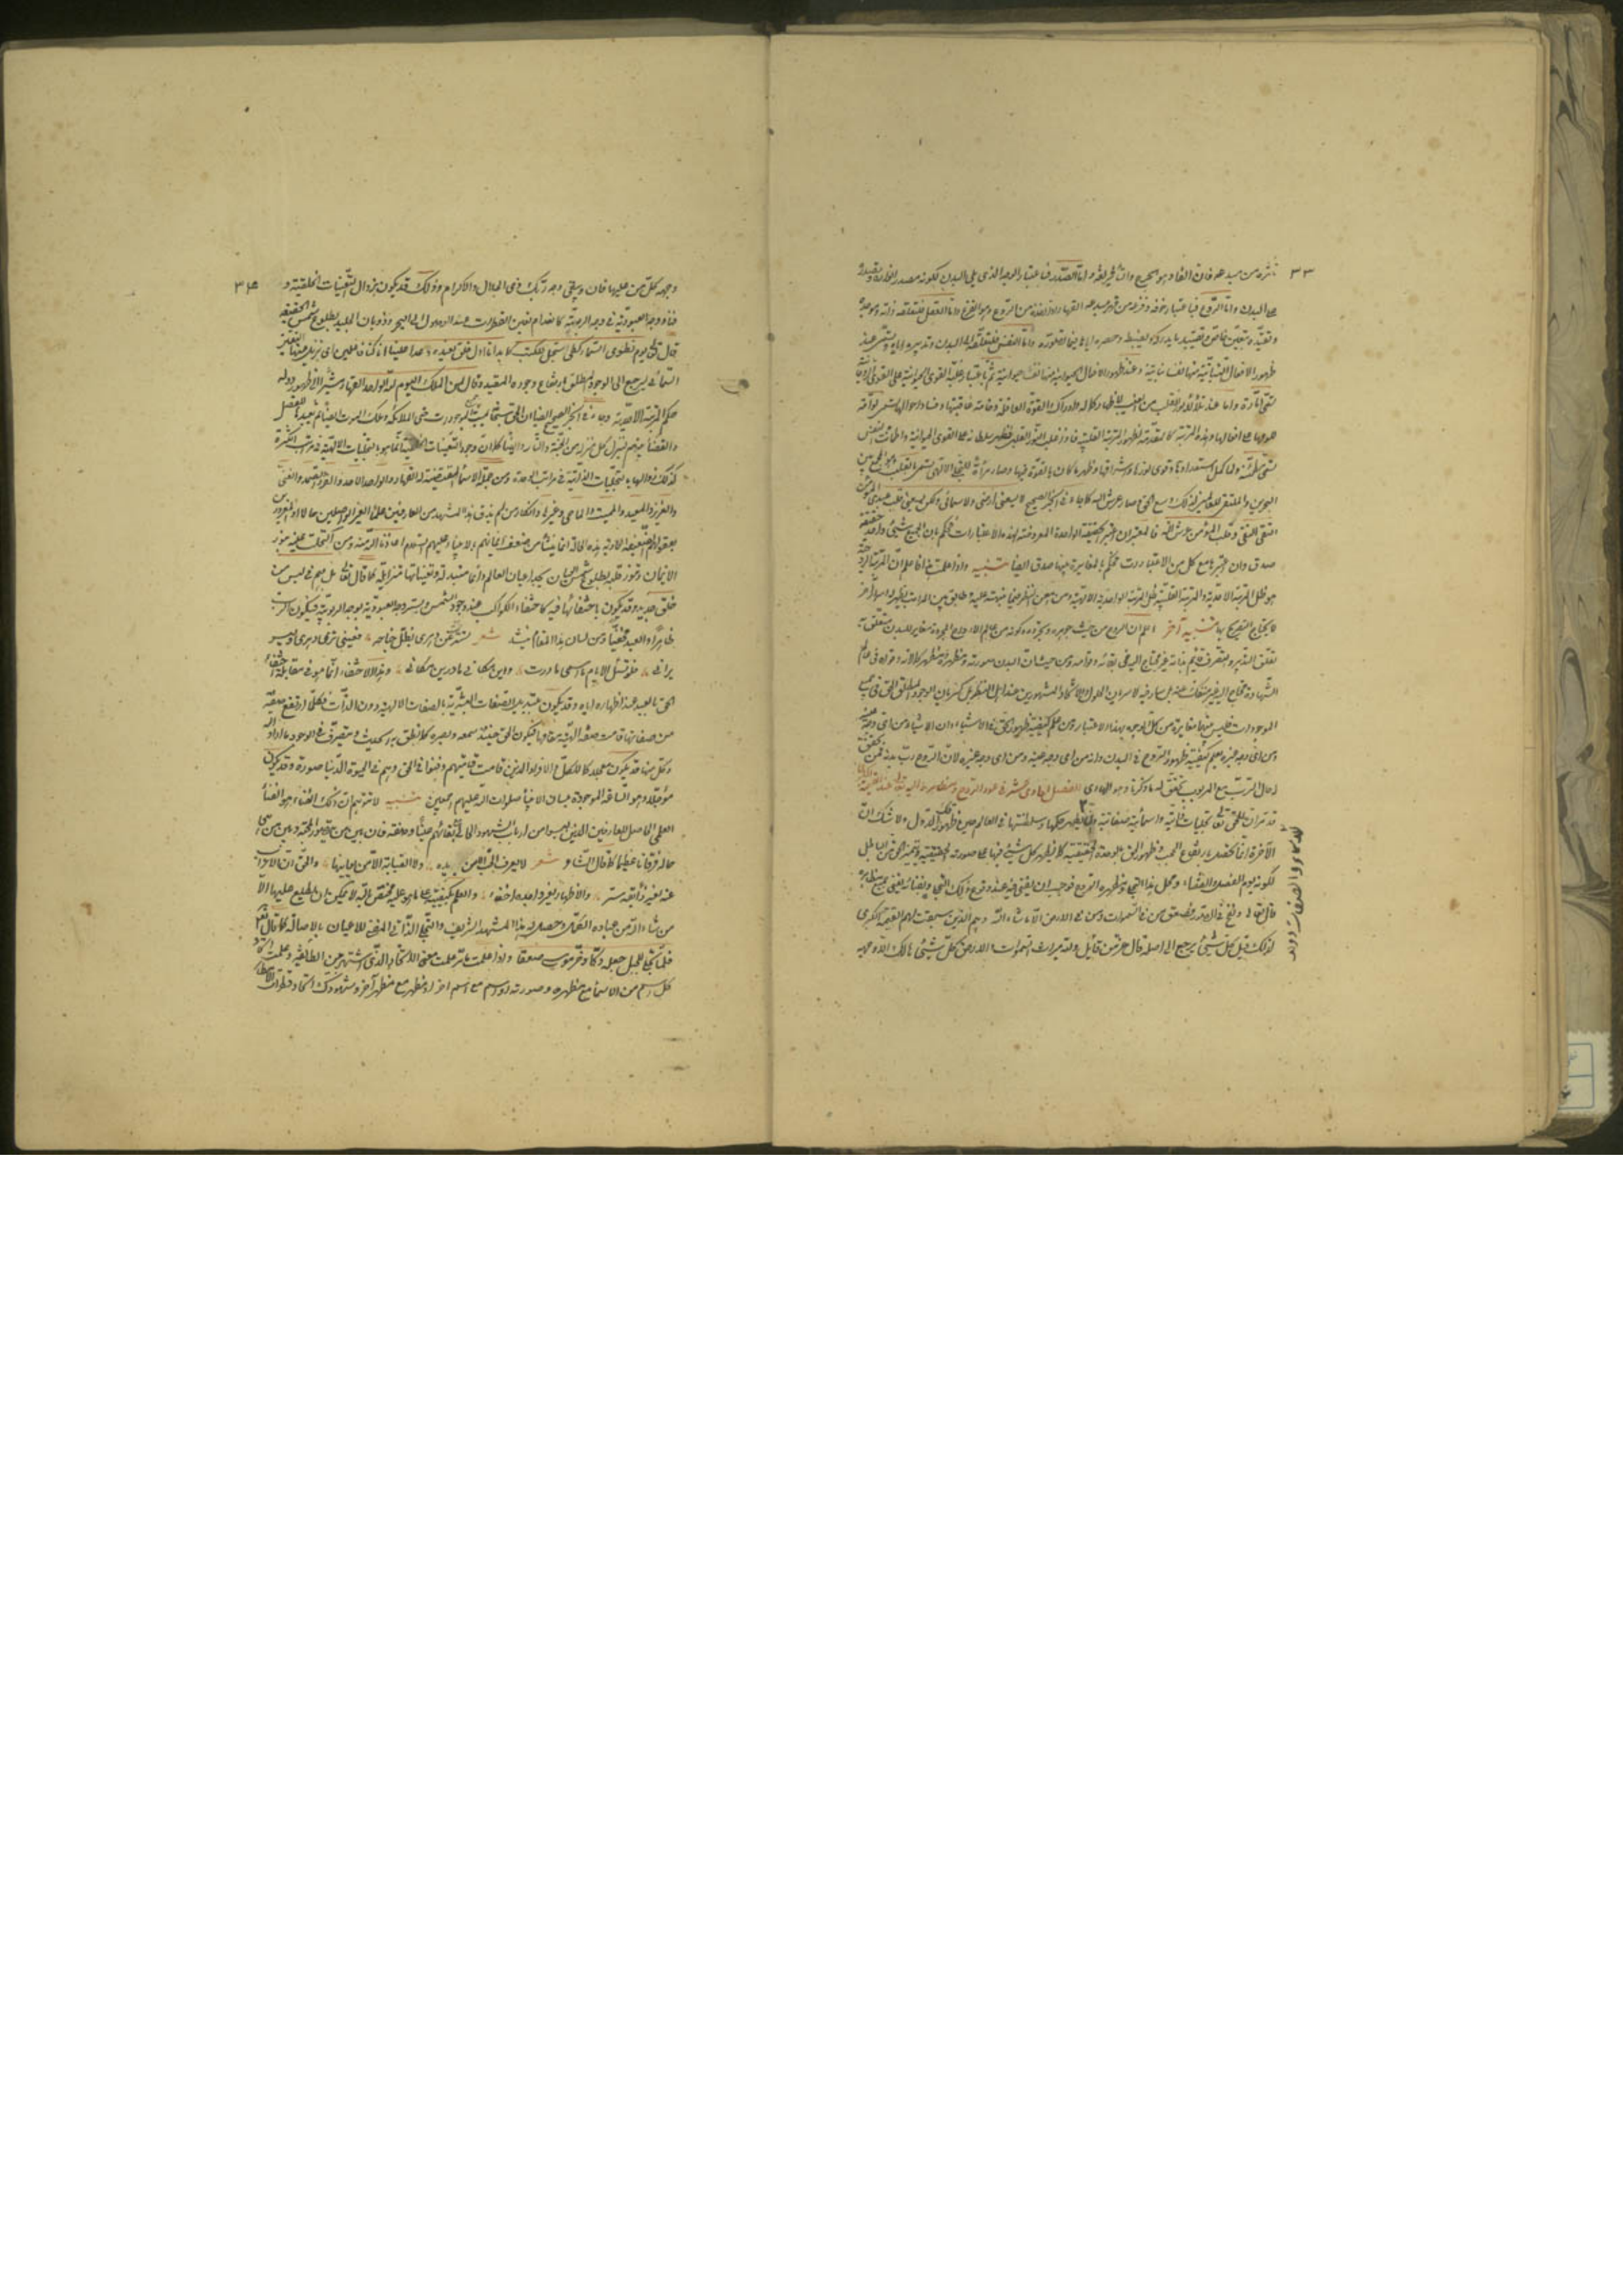 ٣٣
تأثره من مبدعه فان الفاد هو الجرح والتأثر لغة واما الصدر فباعتبار الوجه الذى يلى البدن لكونه مصدر انواره وتصدره
على البدن واما الروع فباعتبار خوفه وفزعه من قهر مبدعه القهار اذ اخذه من الروع وهو الفزع واما العقل فلتعقله ذاته وموجده
وتقيده بتعين خاص وتقييده ما يدركه ويضبطه وحصره اياه فيما تصوره واما النفس فلتعلقه الى البدن وتدبيره اياه وتسمى عند
ظهور الافعال النباتية منها نفسا نباتية وعند ظهور الافعال الحيوانية منها نفسا حيوانية ثم باعتبار غلبة القوى الحيوانية على القوى الروحانية
تسمى امارة وعند تلألؤ نور القلب من الغيب لاظهار كماله وادراك القوة العاقلة وخامة عاقبتها وفساد احوالها تسمى لوامة
للومها على افعالها وهذه المرتبة كالمقدمة لظهور المرتبة القلبية فاذا غلب النور القلبى وظهر سلطانه على القوى الحيوانية واطمأنت النفس
تسمى مطمئنة ولما كمل استعدادها وقوى نورها واشراقها وظهر ما كان بالقوة فيها وصار مرآة للتجلى الالهى تسمى بالقلب وهو المجمع بين
البحرين والملتقى للعالمين لذلك وسع الحق وصار عرش الله كما جاء فى الخبر الصحيح لا يسعنى ارضى ولا سمائى ولكن يسعنى قلب عبدى المؤمن
التقى النقى وقلب المؤمن عرش الله فالمعتبر ان اعتبر الحقيقة الواحدة المعروضة لهذه الاعتبارات فحكم بان الجميع شىء واحد حقيقة
صدق وان اعتبرها مع كل من الاعتبارات فحكم بالمغايرة بينها صدق ايضا تنبيه واذا علمت هذا فاعلم ان المرتبة الروحية
هو ظل المرتبة الاحدية والمرتبة القلبية ظل المرتبة الواحدية الالهية ومن امعن النظر فيما نبهته عليه وطابق بين المراتب يظهر له اسرار اخر
لا يحتاج التصريح بها تنبيه آخر اعلم ان الروح من حيث جوهره وتجرده وكونه من عالم الارواح المجردة مغاير للبدن متعلق به
تعلق التدبير والتصرف قائم بذاته غير محتاج اليه فى بقائه وقوامه ومن حيث ان البدن صورته ومظهره ومظهر كمالاته وقواه فى عالم
الشهادة محتاج اليه غير منفك عنه بل سار فيه لا سريان الحلول والاتحاد المشهورين عند اهل النظر بل كسريان الوجود المطلق الحق فى جميع
الموجودات فليس بينهما مغايرة من كل الوجوه بهذا الاعتبار ومن علم كيفية ظهور الحق فى الاشياء وان الاشياء من اى وجه عينه
ومن اى وجه غيره يعلم كيفية ظهور الروح فى البدن وانه من اى وجه عينه ومن اى وجه غيره لان الروح رب بدنه فمن تحقق
له حال الرب مع المربوب تحقق له ما ذكرنا وهو الهادى الفصل الحادى عشر فى عود الروح ومظاهره اليه تعالى عند القيامة الكبرى
قد مر ان للحق تعالى تجليات ذاتية واسمائية وصفاتية وان للاسماء والصفات دولا يظهر حكمها وسلطنتها فى العالم حين ظهور تلك الدول ولا شك ان
الآخرة انما تحصل بارتفاع الحجب وظهور الحق بالوحدة الحقيقية كما يظهر كل شىء فيها على صورته الحقيقية ويتميز الحق من الباطل
لكونه يوم الفصل والقضاء ومحل هذا التجلى ومظهره الروح فوجب ان يفنى فيه عند وقوع ذلك التجلى وبفنائه يفنى جميع مظاهره
قال تعالى ونفخ فى الصور فصعق من فى السموات ومن فى الارض الا ما شاء الله وهم الذين سبقت لهم القيامة الكبرى
لذلك قيل كل شىء يرجع الى اصله قال عز من قائل ولله ميراث السموات والارض كل شىء هالك الا وجهه
٣٤
وجهه كل من عليها فان ويبقى وجه ربك ذى الجلال والاكرام وذلك قد يكون بزوال التعينات الخلقية و
فناء وجه العبودية فى وجه الربوبية كانعدام تعين القطرات عند الوصول الى البحر وذوبان الجليد بطلوع شمس الحقيقة
قال تعالى يوم نطوى السماء كطى السجل للكتب كما بدأنا اول خلق نعيده وعدا علينا انا كنا فاعلين اى نزيل عنها التعين
السمائى ليرجع الى الوجود المطلق بارتفاع وجوده المقيد وقال لمن الملك اليوم لله الواحد القهار مشيرا الى ظهور دولة
حكم المرتبة الاحدية وجاء فى الخبر الصحيح ايضا ان الحق سبحانه يميت جميع الموجودات حتى الملائكة وملك الموت ايضا ثم يعيدها للفصل
والقضاء بينهم لينزل كل منزلته من الجنة والنار وايضا كما ان وجود التعينات الخلقية انما هو بالتجليات الالهية فى مراتب الكثرة
كذلك زوالها بالتجليات الذاتية فى مراتب الوحدة ومن جملة الاسماء المقتضية له القهار والواحد الاحد والفرد الصمد والغنى
والعزيز والمعيد والمميت والماحى وغيرها وانكار من لم يذق هذا المشهد من العارفين علما الغير الواصلين حالا او المغرورين
بعقولهم الضعيفة العادية هذه الحالة انما ينشأ من ضعف ايمانهم بالانبياء عليهم السلام اعاذنا الله منه ومن اكتحلت عينه بنور
الايمان وتنور قلبه بطلوع شمس العيان يجد اعيان العالم دائما متبدلة وتعيناتها متزايلة كما قال تعالى بل هم فى لبس من
خلق جديد وقد يكون باختفائها فيه كاختفاء الكواكب عند وجود الشمس ويستر وجه العبودية بوجه الربوبية فيكون الرب
ظاهرا والعبد مخفيا ومن لسان هذا المقام ينشد شعر تسترت عن دهرى بظل جناحه فعينى ترى دهرى وليس
يرانى فلو تسأل الايام ما اسمى ما درت واين مكانى ما درين مكانى وهذا الاختفاء انما هو فى مقابلة اختفاء
الحق بالعبد عند اظهاره اياه وقد يكون بتبديل الصفات البشرية بالصفات الالهية دون الذات فكلما ارتفع صفة
من صفاتها قامت صفة الهية مقامها فيكون الحق حينئذ سمعه وبصره كما نطق به الحديث ويتصرف فى الوجود بما اراد الله
وكل منها قد يكون معجلا كما للكمل والافراد الذين قامت قيامتهم وفنوا فى الحق وهم فى الحيوة الدنيا صورة وقد يكون
مؤجلا وهو الساعة الموعودة بلسان الانبياء صلوات الله عليهم اجمعين تنبيه لا تتوهم ان ذلك الفناء هو الفناء
العلمى الحاصل للعارفين الذين ليسوا من ارباب الشهود الحالى مع بقائهم عينا وصفة فان بين من يتصور المحبة وبين من هى
حاله فرقانا عظيما كما قال الشاعر شعر لا يعرف الحب الا من يكابده ولا الصبابة الا من يعانيها والحق ان الاعراب
عنه لغير ذائقه ستر والاظهار لغير واجده اخفاء والعلم بكيفيته على ما هو عليه مختص بالله لا يمكن ان يطلع عليها الا
من شاء الله من عباده الكمل وحصل له هذا المشهد الشريف والتجلى الذاتى المفنى للاعيان بالاصالة كما قال تعالى
فلما تجلى ربه للجبل جعله دكا وخر موسى صعقا واذا علمت ما مر علمت معنى الاتحاد الذى اشتهر بين الطائفة وعلمت اتحاد
كل اسم من الاسماء مع مظهره وصورته او اسم مع اسم آخر او مظهر مع مظهر آخر وشهودك اتحاد قطرات الامطار